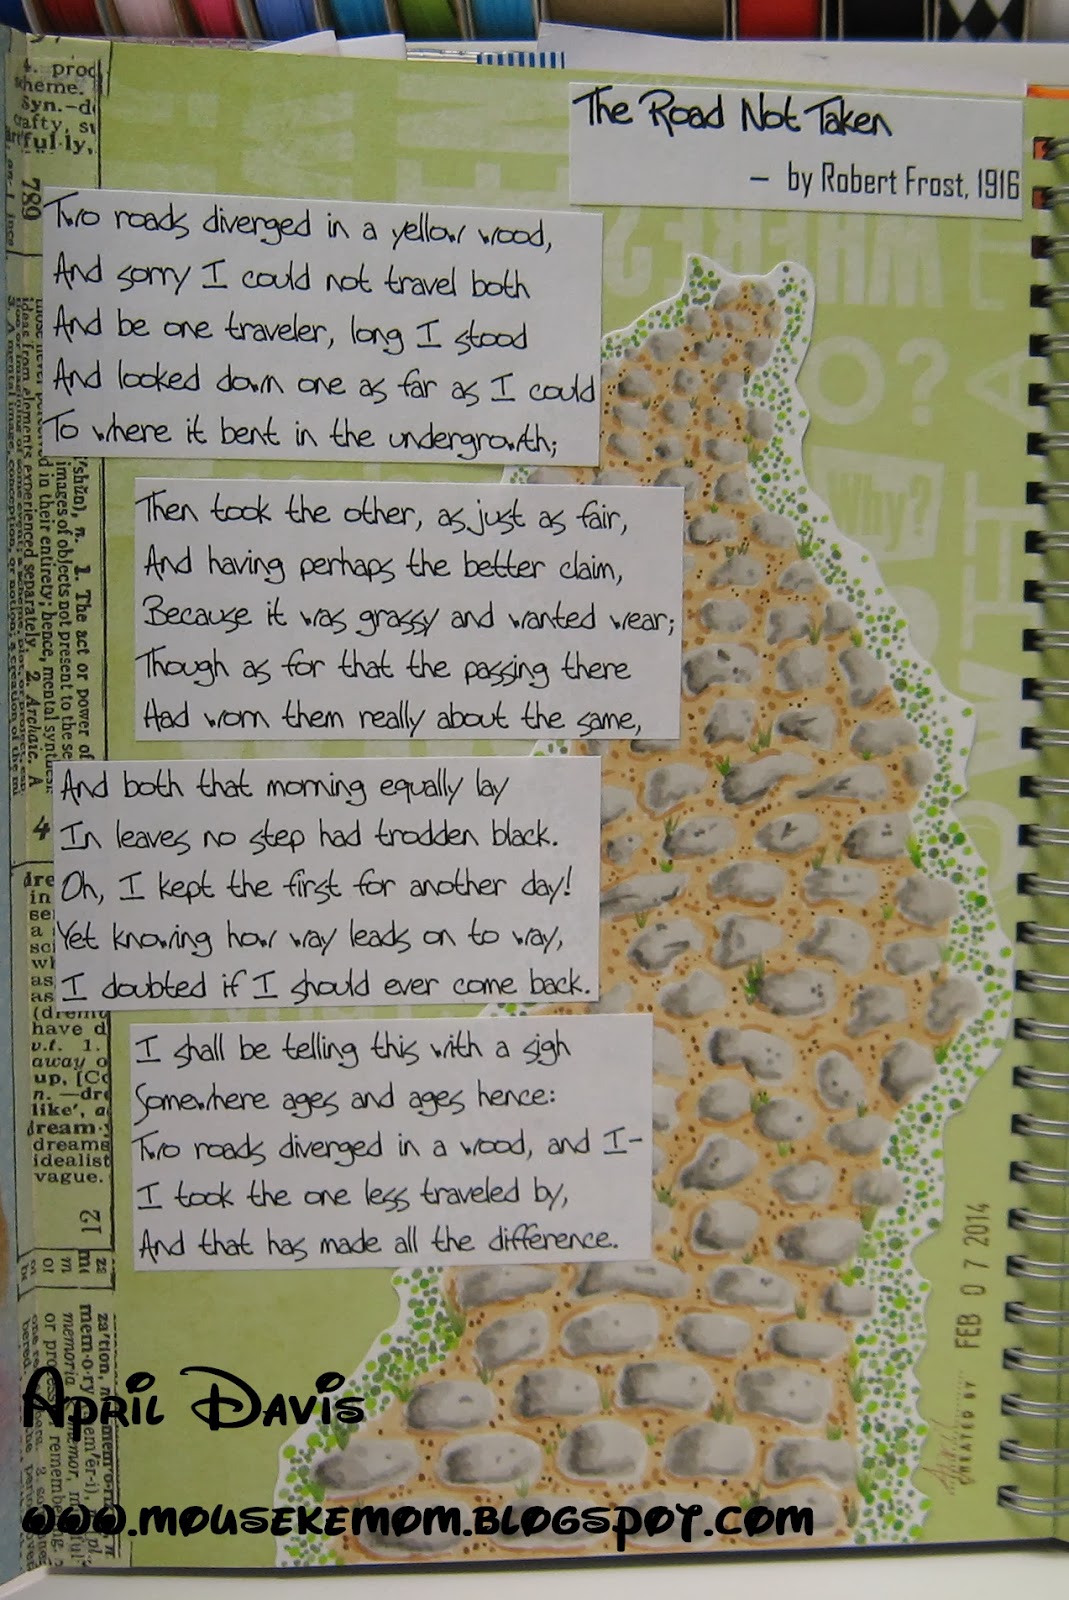 The Road Not Taken
— by Robert Frost, 1916
Two roads diverged in a yellow wood,
And sorry I could not travel both
And be one traveler, long I stood
And looked down one as far as I could
To where it bent in the undergrowth;
Then took the other, as just as fair,
And having perhaps the better claim,
Because it was grassy and wanted wear;
Though as for that the passing there
Had worn them really about the same,
And both that morning equally lay
In leaves no step had trodden black.
Oh, I kept the first for another day!
Yet knowing how way leads on to way,
I doubted if I should ever come back.
I shall be telling this with a sigh
Somewhere ages and ages hence:
Two roads diverged in a wood, and I-
I took the one less traveled by,
And that has made all the difference.
WHERE?
WHO?
Why?
WHAT
FEB 07 2014
CREATED BY
789
4
12
1. The act or power of
images of objects not present to the se
in their entirety; hence, mental
experienced separately. 2. Archaic. A
have d
v.t. 1.
away o
up,
like',
dream
dreams
idealist
vague.
April Davis
www.mousekemom.blogspot.com